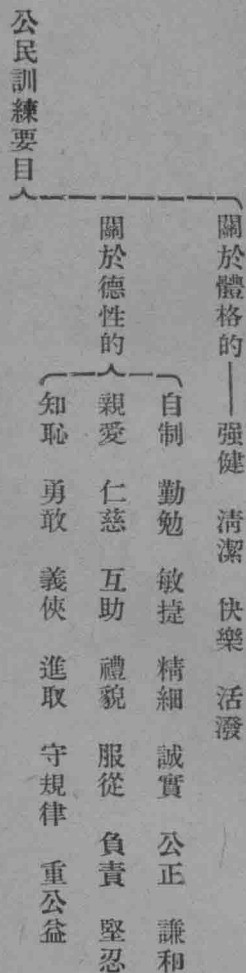 公民訓練要目
關於體格的——强健 清潔 快樂 活潑
關於德性的
自制 勤勉 敏捷 精細 誠實 公正 謙和
親愛 仁慈 互助 禮貌 服從 負責 堅忍
知恥 勇敢 義俠 進取 守規律 重公益